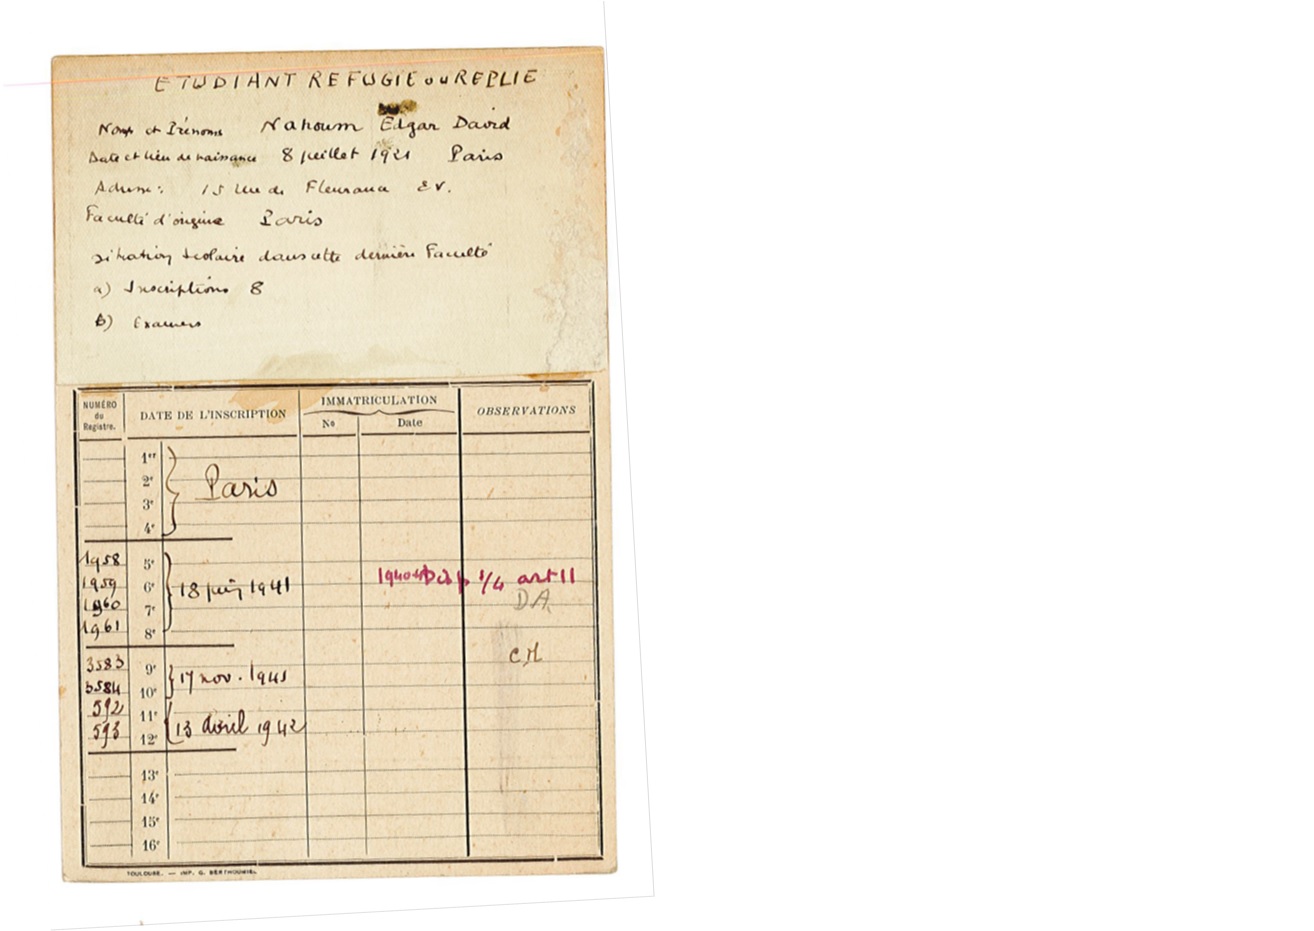 ETUDIANT REFUGIE ou REPLIE
Nom et Prénoms Nahoum Edgar David
Date et lieu de naissance 8 juillet 1921 Paris
Adresse: 15 rue de Fleurance E.V.
Faculté d'origine Paris
situation scolaire dans cette dernière Faculté
a) Inscriptions 8
b) Examens
NUMÉRO du Registre. DATE DE L'INSCRIPTION IMMATRICULATION OBSERVATIONS
No Date
1er
2e Paris
3e
4e
1958 5e
1959 6e 18 juin 1941 1940-41 Disp 1/4 art 11
1960 7e D.A.
1961 8e
3583 9e C.M
3584 10e 17 nov. 1941
592 11e
593 12e 13 avril 1942
13e
14e
15e
16e
TOULOUSE. — IMP. G. BERTHOUMIEU